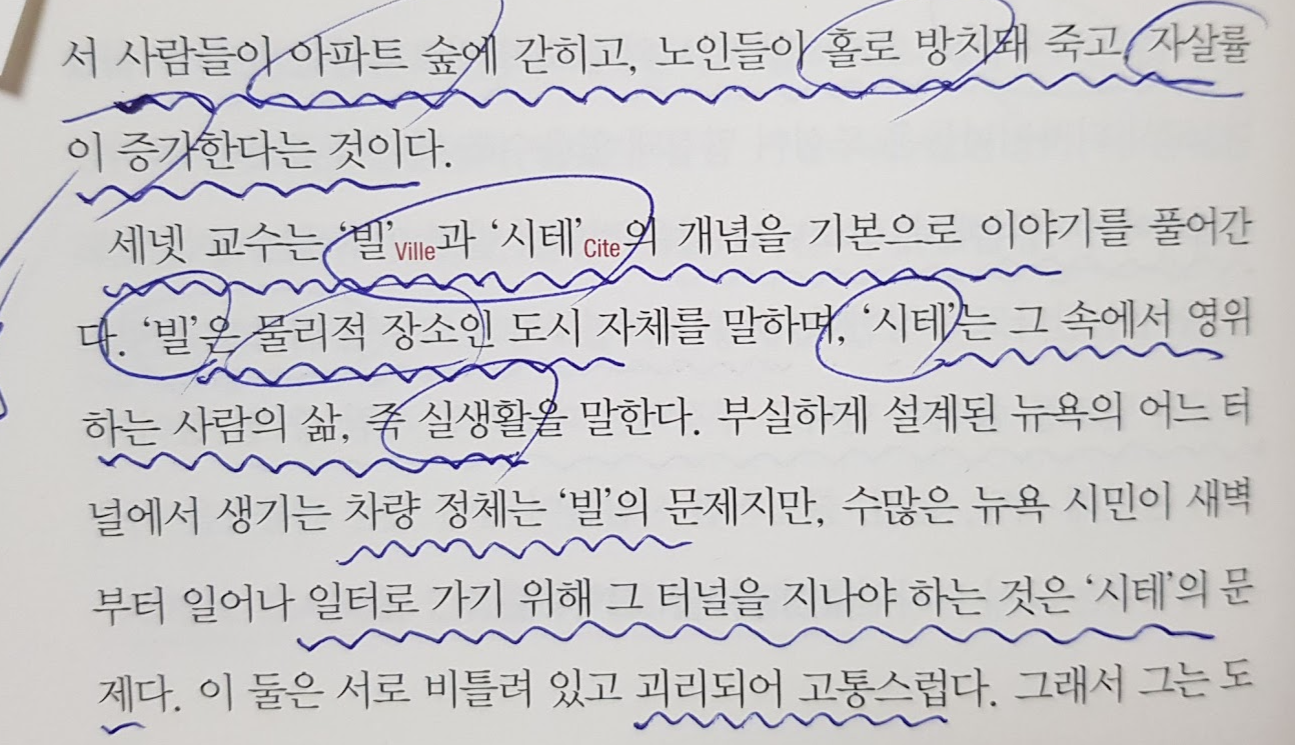 서 사람들이 아파트 숲에 갇히고, 노인들이 홀로 방치돼 죽고 자살률
이 증가한다는 것이다.
세넷 교수는 ‘빌’Ville과 ‘시테’Cite의 개념을 기본으로 이야기를 풀어간
다. ‘빌’은 물리적 장소인 도시 자체를 말하며, ‘시테’는 그 속에서 영위
하는 사람의 삶, 즉 실생활을 말한다. 부실하게 설계된 뉴욕의 어느 터
널에서 생기는 차량 정체는 ‘빌’의 문제지만, 수많은 뉴욕 시민이 새벽
부터 일어나 일터로 가기 위해 그 터널을 지나야 하는 것은 ‘시테’의 문
제다. 이 둘은 서로 비틀려 있고 괴리되어 고통스럽다. 그래서 그는 도